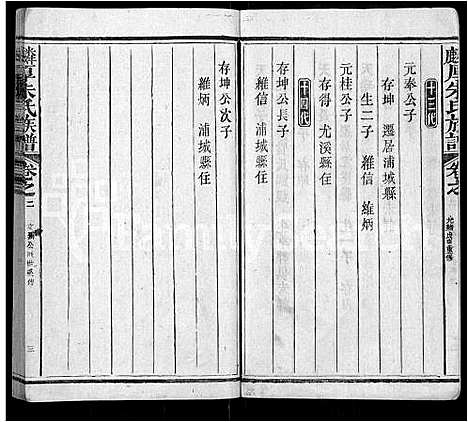 麟厚朱氏族譜
卷之
十三代
元奉公子
存坤 遷居浦城縣
生二子 維信 維炳
元桂公子
存得 尤溪縣住
十四代
存坤公長子
維信 浦城縣住
存坤公次子
維炳 浦城縣住
朱氏族譜
卷之二
三